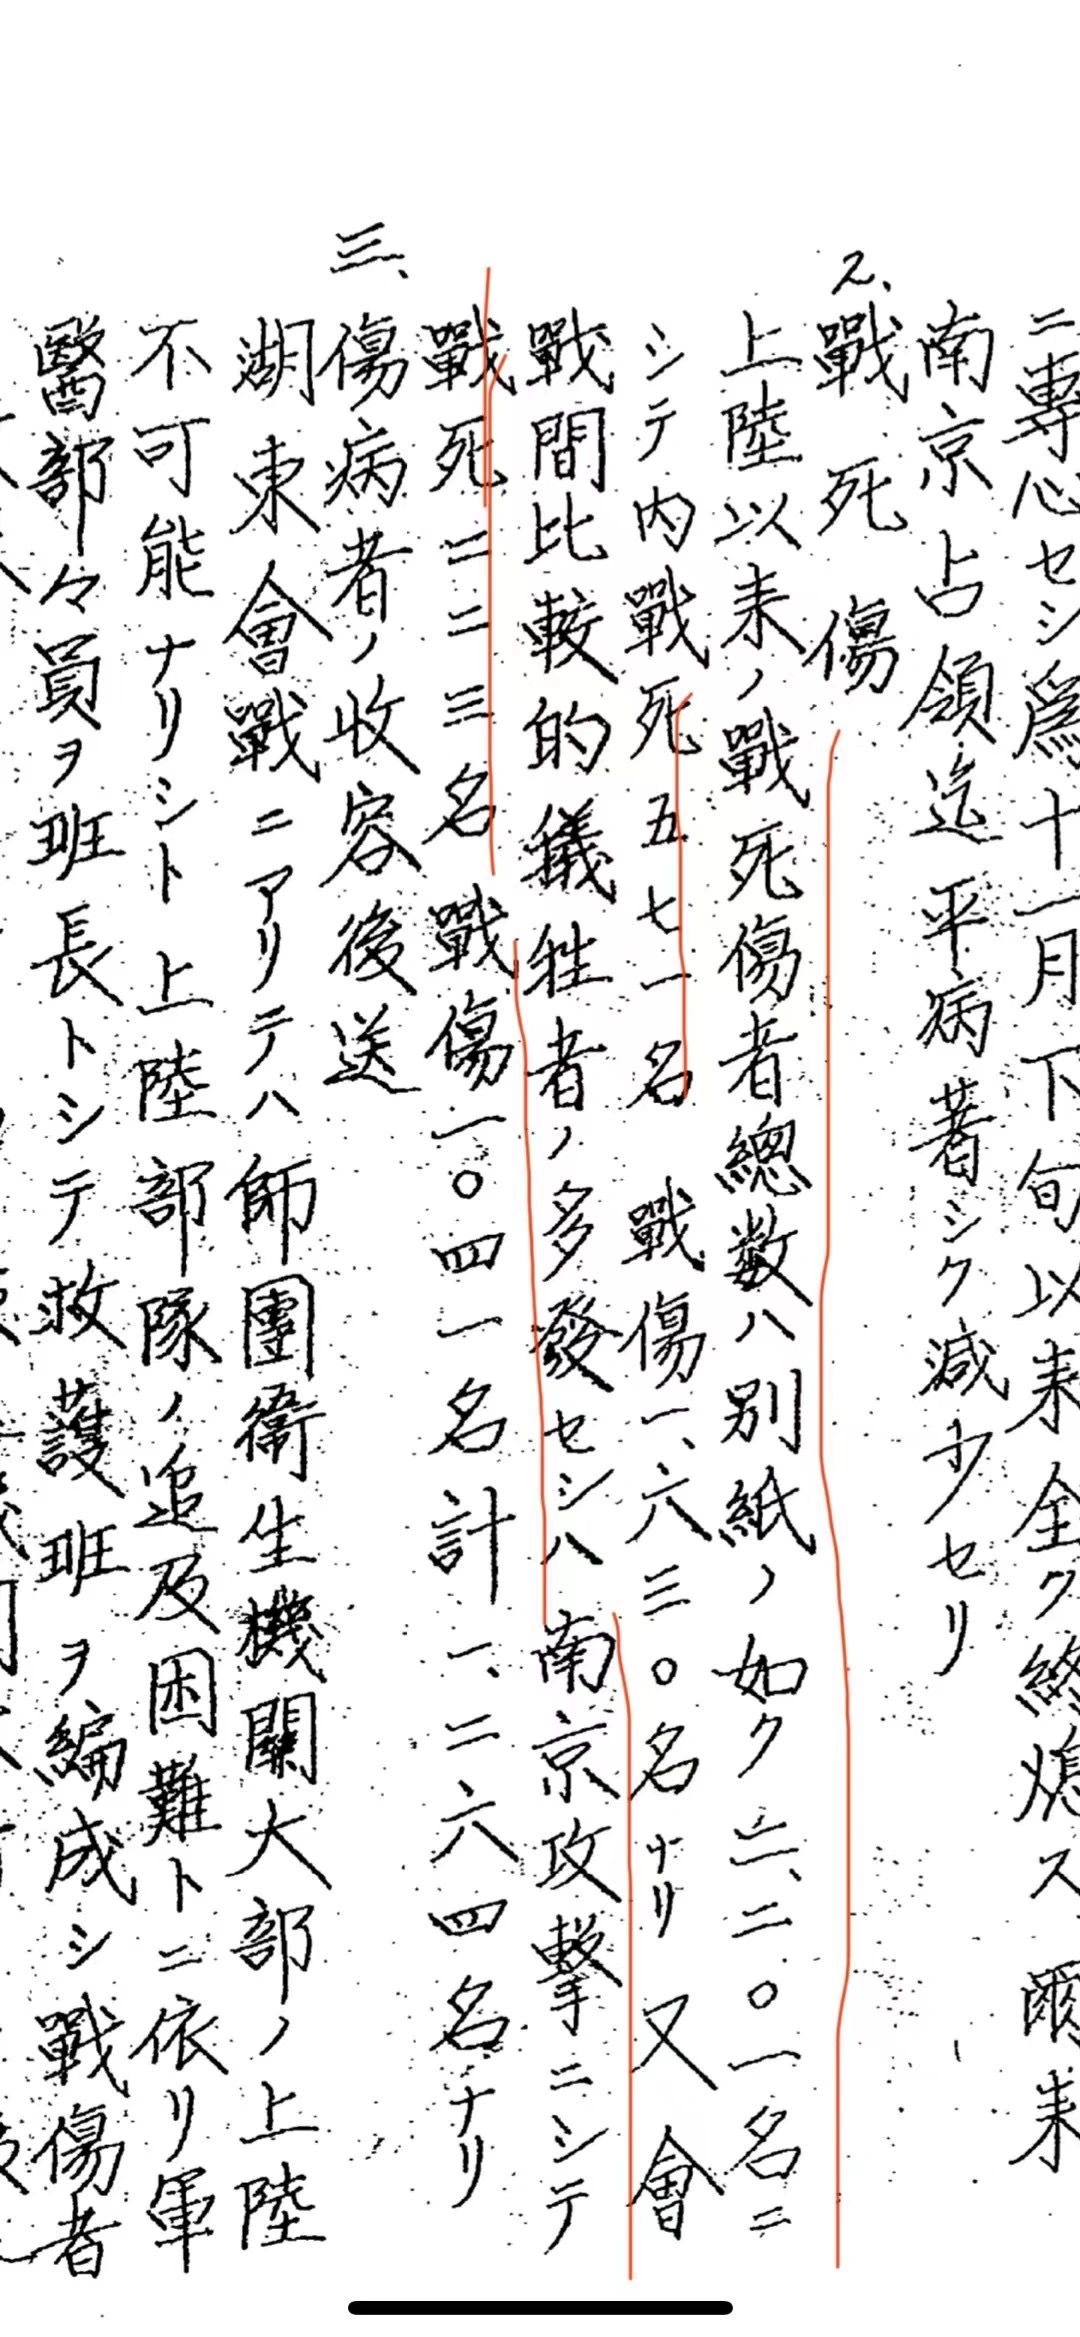 ニ專心セシ爲十一月下旬以来全ク終熄ス爾来
南京占領迄平病著シク減少セリ
2、戰死傷
上陸以来ノ戰死傷者總数ハ別紙ノ如ク二、二〇一名ニ
シテ内戰死五七一名 戰傷一、六三〇名ナリ又會
戰間比較的犠牲者ノ多發セシハ南京攻撃ニシテ
戰死二二三名 戰傷一〇四一名計一、二六四名ナリ
三、傷病者ノ收容後送
湖東會戰ニアリテハ師團衞生機關大部ノ上陸
不可能ナリシト上陸部隊ノ追及困難トニ依リ軍
醫部々員ヲ班長トシテ救護班ヲ編成シ戰傷者